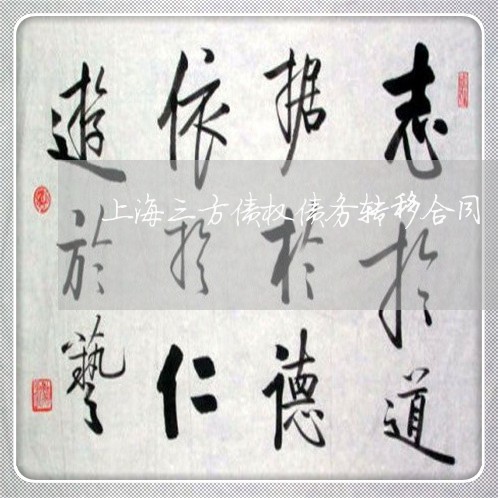 志於道
据於德
依於仁
遊於藝
上海三方债权债务转移合同